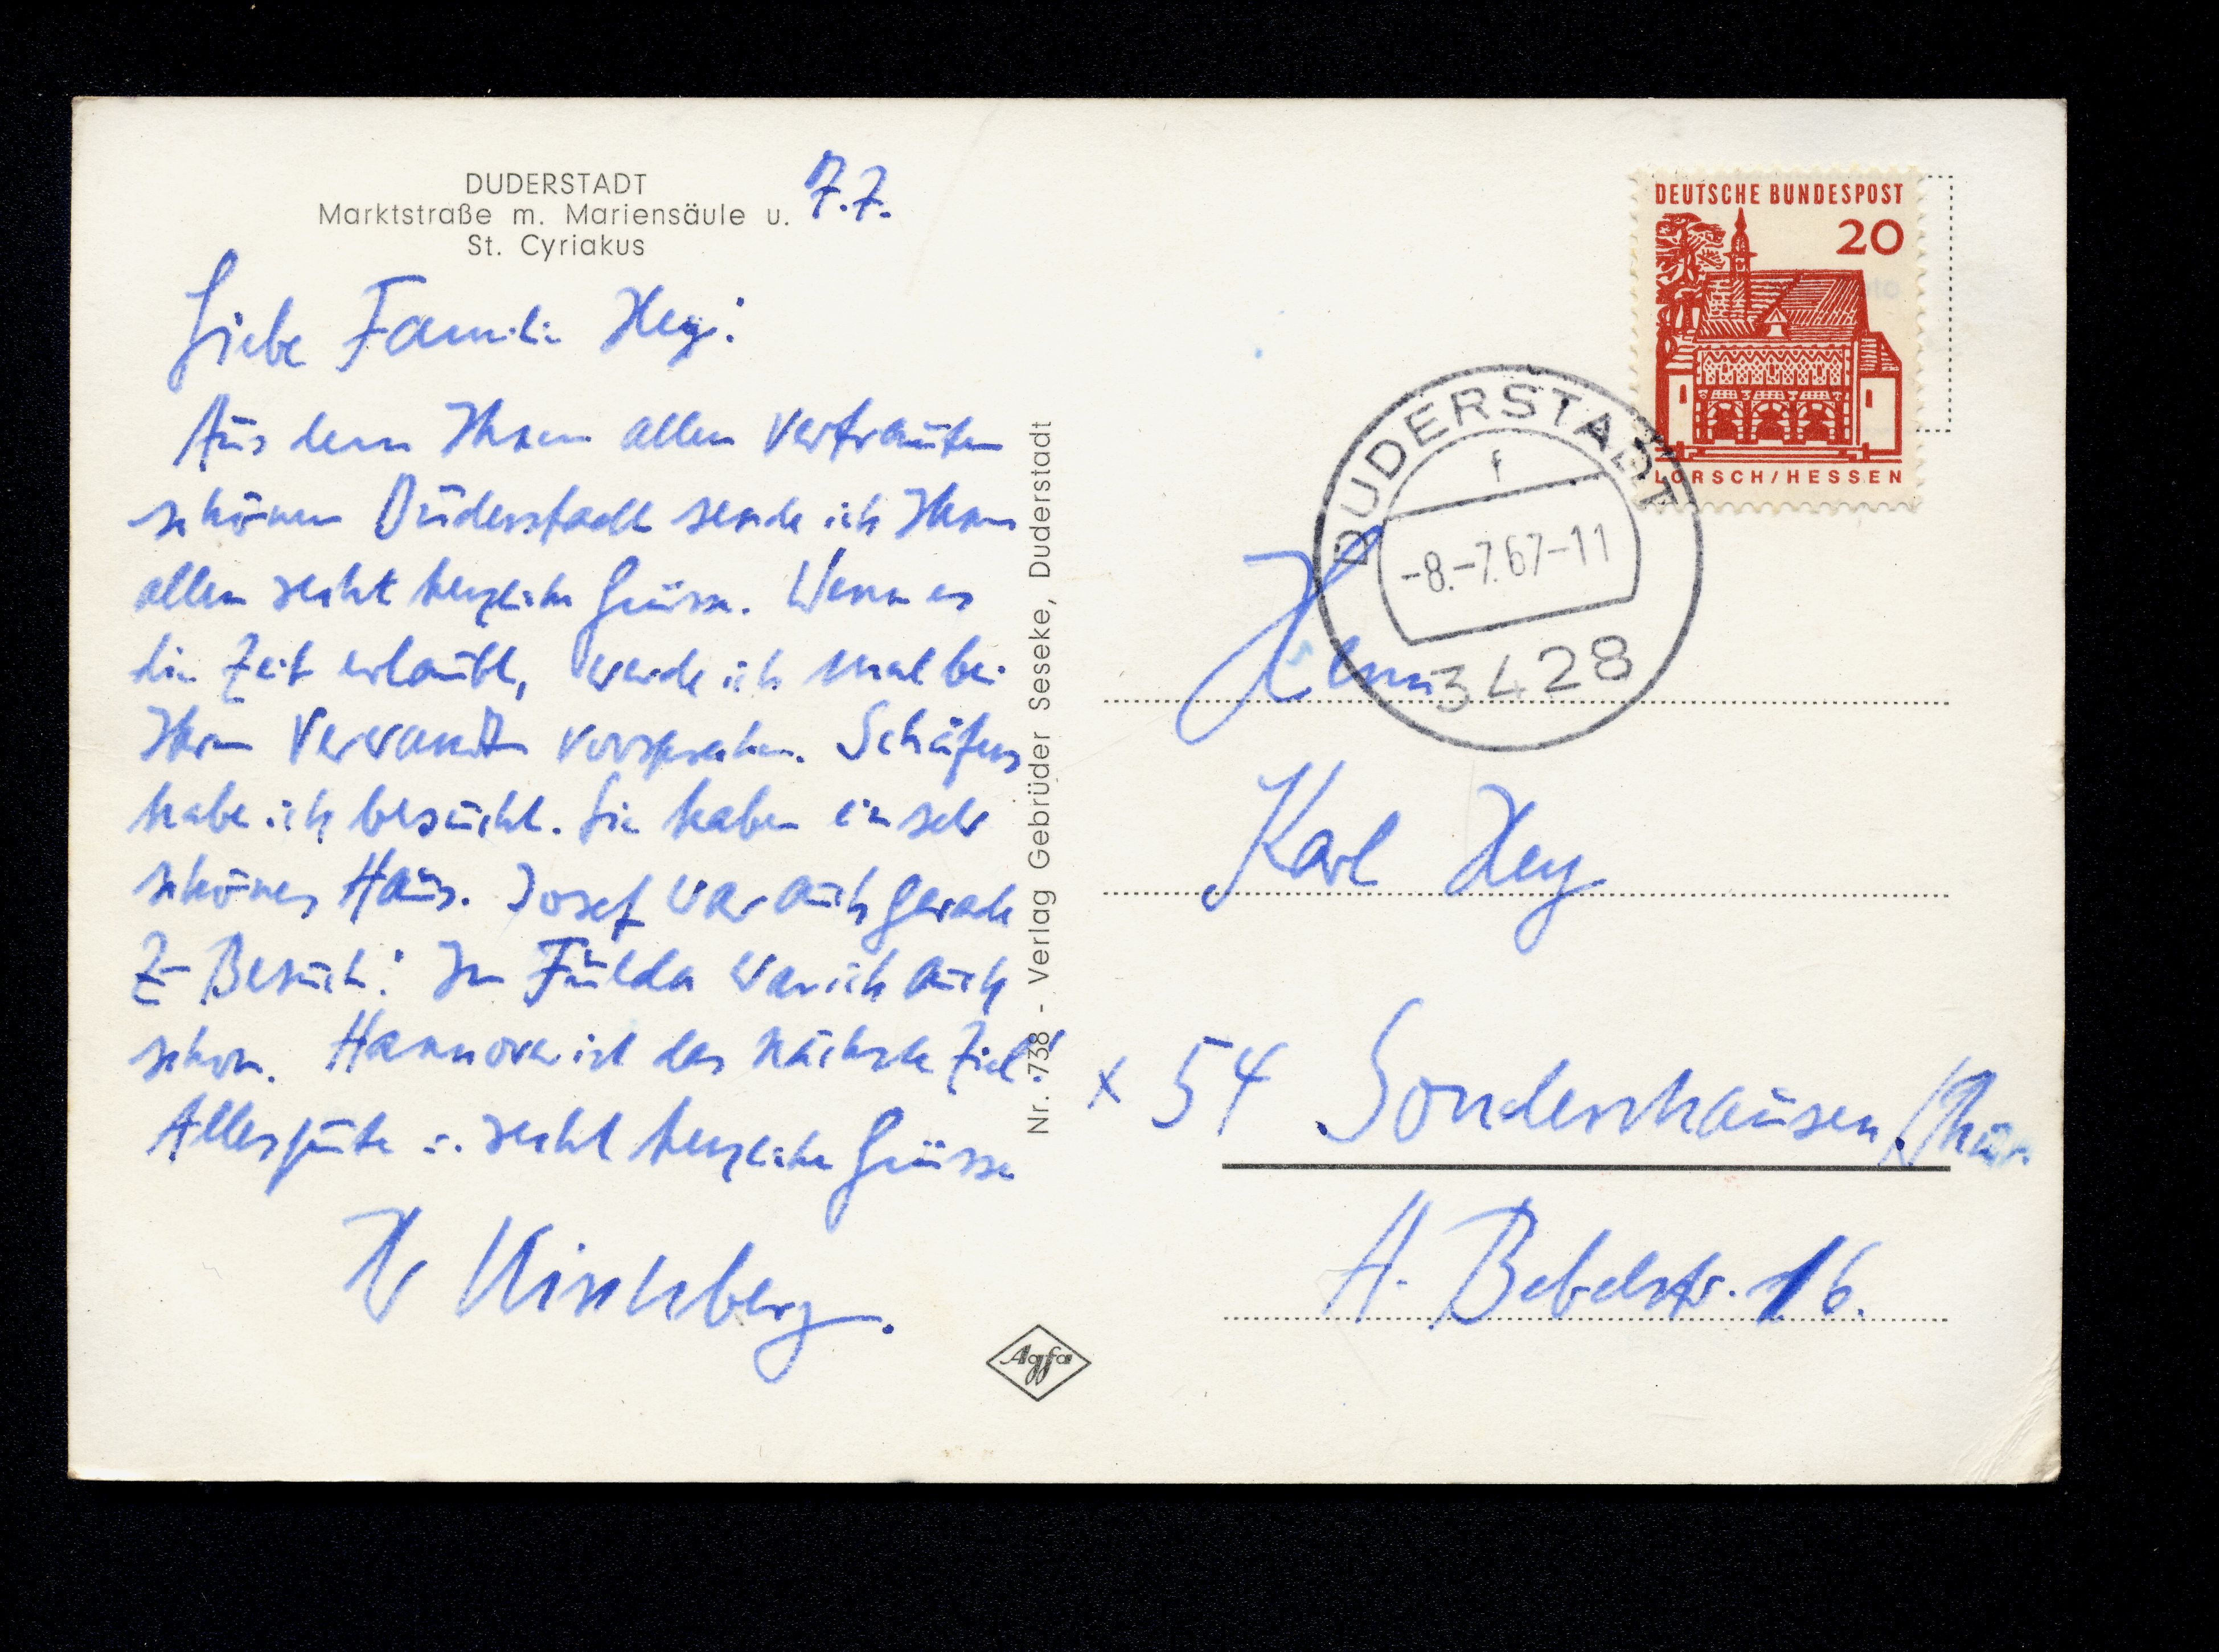 DUDERSTADT
Marktstraße m. Mariensäule u.
St. Cyriakus
7.7.
Liebe Familie Hey!
Aus dem Ihnen allen vertrauten
schönen Duderstadt sende ich Ihnen
allen recht herzliche Grüsse. Wenn es
die Zeit erlaubt, werde ich mal bei
Ihren Verwandten vorsprechen. Schäfers
habe ich besucht. Sie haben ein sehr
schönes Haus. Josef war auch gerade
z. Besuch! In Fulda war ich auch
schon. Hannover ist das nächste Ziel!
Alles gute u. recht herzliche Grüsse
Nr. 738 - Verlag Gebrüder Seseke, Duderstadt
Agfa
DEUTSCHE BUNDESPOST
20
LORSCH/HESSEN
DUDERSTADT
f
-8.-7.67-11
3428
Herrn
Karl Hey
x 54 Sondershausen/Thür.
A. Bebelstr. 16.